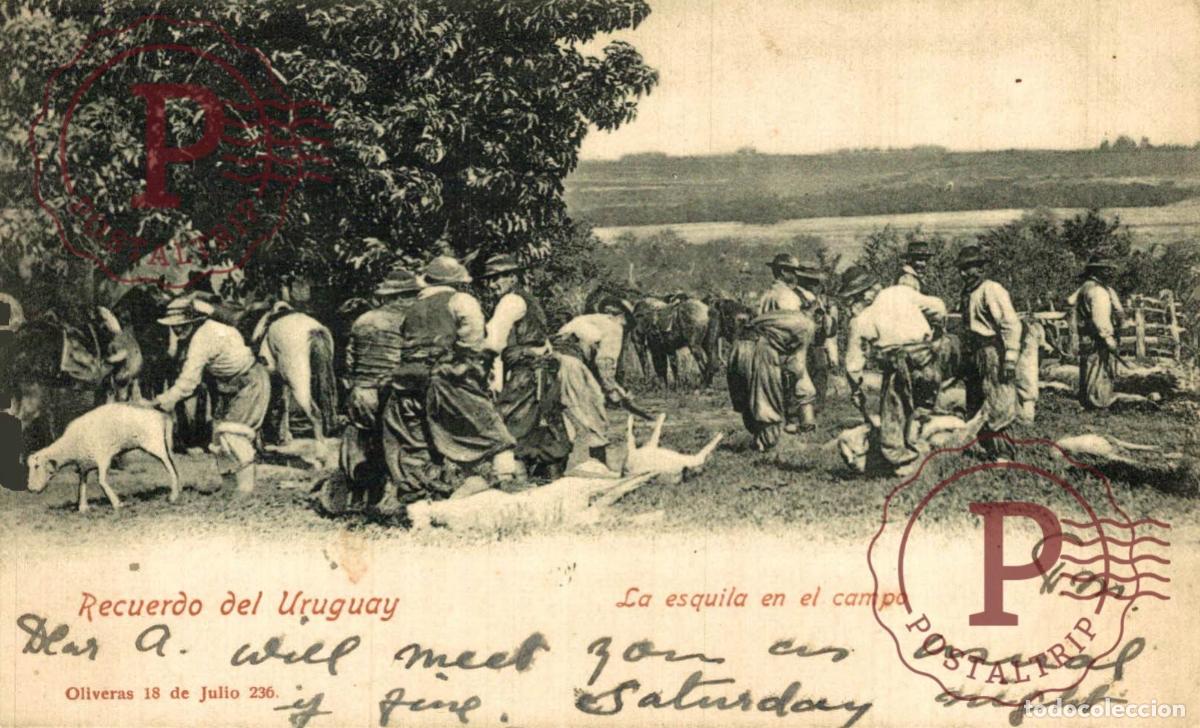 P
POSTALTRIP
Recuerdo del Uruguay
La esquila en el campo
P
POSTALTRIP
Dear A. will meet you as usual
Oliveras 18 de Julio 236.
if fine. Saturday night
todocoleccion